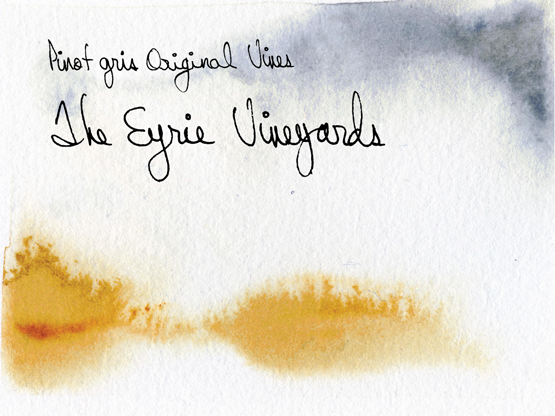 Pinot gris Original Vines
The Eyrie Vineyards